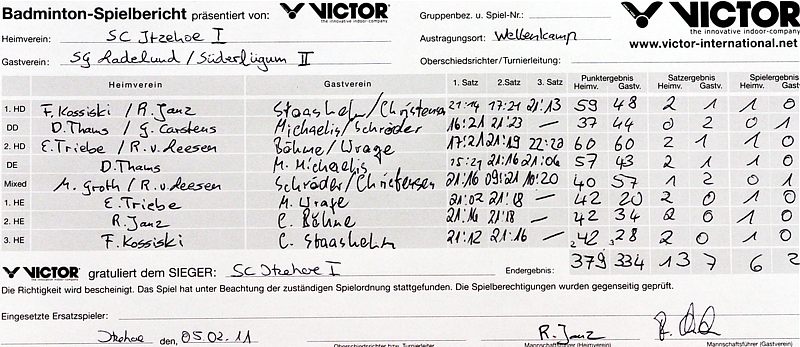 Badminton-Spielbericht präsentiert von: VICTOR the innovative indoor-company Gruppenbez. u. Spiel-Nr.: VICTOR the innovative indoor-company
Heimverein: SC Itzehoe I Austragungsort: Wellenkamp www.victor-international.net
Gastverein: SG Ladelund / Süderlügum II Oberschiedsrichter/Turnierleitung:
Heimverein Gastverein 1. Satz 2.Satz 3. Satz Punktergebnis Heimv. Gastv. Satzergebnis Heimv. Gastv. Spielergebnis Heimv. Gastv.
1. HD F. Kossiski / R. Janz Staashelm/Christensen 21:14 17:21 21:13 59 48 2 1 1 0
DD D. Thams / G. Carstens Michaelis/Schröder 16:21 21:23 — 37 44 0 2 0 1
2. HD E. Triebe / R. v. Leesen Böhne/Wrage 17:21 21:19 22:20 60 60 2 1 1 0
DE D. Thams M. Michaelis 15:21 21:16 21:06 57 43 2 1 1 0
Mixed M. Groth / R. v. Leesen Schröder/Christensen 21:16 09:21 10:20 40 57 1 2 0 1
1. HE E. Triebe M. Wrage 21:02 21:18 — 42 20 2 0 1 0
2. HE R. Janz C. Böhne 21:16 21:18 — 42 34 2 0 1 0
3. HE F. Kossiski C. Staashelm 21:12 21:16 — 42 28 2 0 1 0
VICTOR gratuliert dem SIEGER: SC Itzehoe I Endergebnis: 379 334 13 7 6 2
Die Richtigkeit wird bescheinigt. Das Spiel hat unter Beachtung der zuständigen Spielordnung stattgefunden. Die Spielberechtigungen wurden gegenseitig geprüft.
Eingesetzte Ersatzspieler:
Itzehoe den, 05.02.11 R. Janz
Oberschiedsrichter bzw. Turnierleiter Mannschaftsführer (Heimverein) Mannschaftsführer (Gastverein)